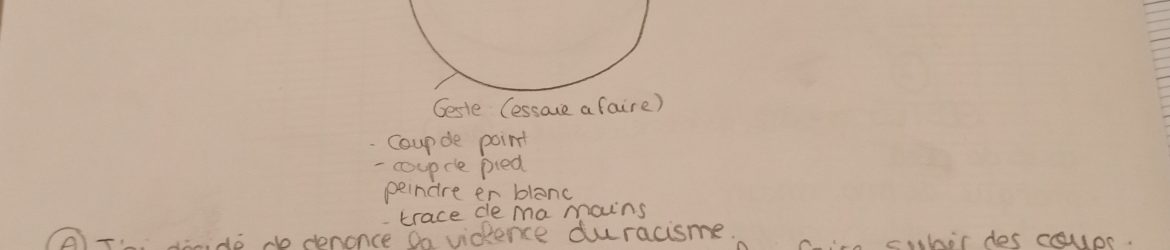 Geste (essaie a faire)
- coup de point
- coup de pied
peindre en blanc
- trace de ma mains
A J'ai décidé de denoncé la violence du racisme.
faire subir des coups.